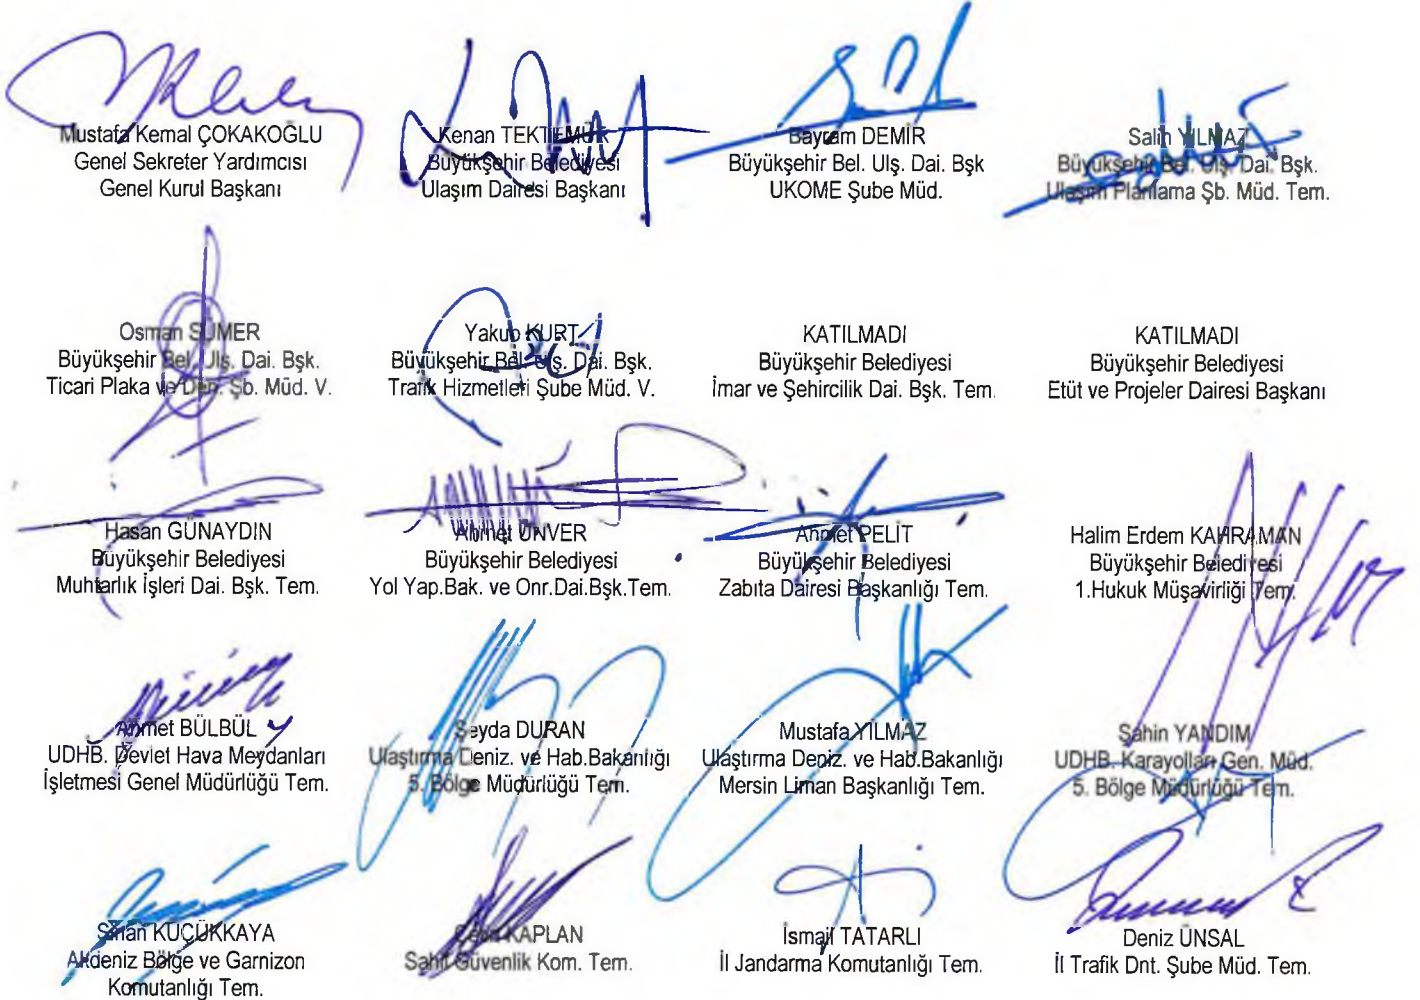 Mustafa Kemal ÇOKAKOĞLU
Genel Sekreter Yardımcısı
Genel Kurul Başkanı
Kenan TEKTEMUR
Büyükşehir Belediyesi
Ulaşım Dairesi Başkanı
Bayram DEMİR
Büyükşehir Bel. Ulş. Dai. Bşk
UKOME Şube Müd.
Salih YILMAZ
Büyükşehir Bel. Ulş. Dai. Bşk.
Ulaşım Planlama Şb. Müd. Tem.
Osman SÜMER
Büyükşehir Bel. Ulş. Dai. Bşk.
Ticari Plaka ve Den. Şb. Müd. V.
Yakub KURT
Büyükşehir Bel. Ulş. Dai. Bşk.
Trafik Hizmetleri Şube Müd. V.
KATILMADI
Büyükşehir Belediyesi
İmar ve Şehircilik Dai. Bşk. Tem.
KATILMADI
Büyükşehir Belediyesi
Etüt ve Projeler Dairesi Başkanı
Hasan GÜNAYDIN
Büyükşehir Belediyesi
Muhtarlık İşleri Dai. Bşk. Tem.
Ahmet ÜNVER
Büyükşehir Belediyesi
Yol Yap.Bak. ve Onr.Dai.Bşk.Tem.
Ahmet PELİT
Büyükşehir Belediyesi
Zabıta Dairesi Başkanlığı Tem.
Halim Erdem KAHRAMAN
Büyükşehir Belediyesi
1.Hukuk Müşavirliği Tem.
Ahmet BÜLBÜL
UDHB. Devlet Hava Meydanları
İşletmesi Genel Müdürlüğü Tem.
Şeyda DURAN
Ulaştırma Deniz. ve Hab.Bakanlığı
5. Bölge Müdürlüğü Tem.
Mustafa YILMAZ
Ulaştırma Deniz. ve Hab.Bakanlığı
Mersin Liman Başkanlığı Tem.
Şahin YANDIM
UDHB. Karayolları Gen. Müd.
5. Bölge Müdürlüğü Tem.
Sinan KÜÇÜKKAYA
Akdeniz Bölge ve Garnizon
Komutanlığı Tem.
KAPLAN
Sahil Güvenlik Kom. Tem.
İsmail TATARLI
İl Jandarma Komutanlığı Tem.
Deniz ÜNSAL
İl Trafik Dnt. Şube Müd. Tem.